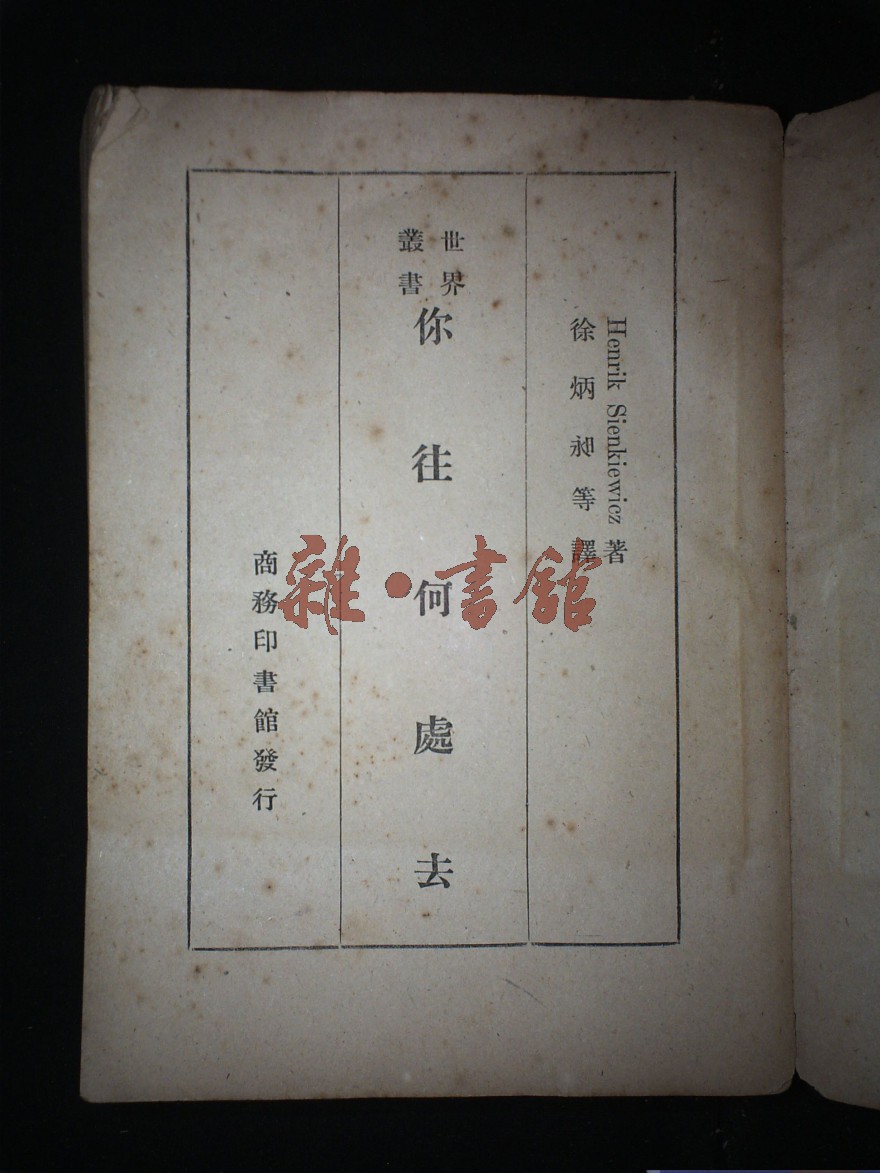 Henrik Sienkiewicz 著
徐炳昶等譯
世界
叢書
你往何處去
商務印書館發行
雜·書館